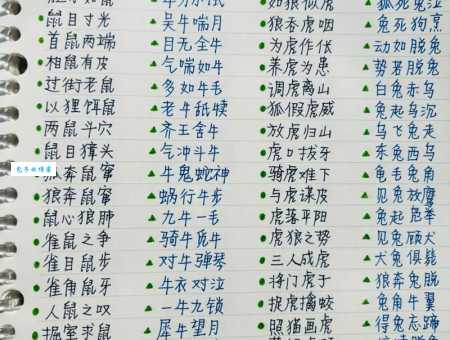 鼠目寸光 吴牛喘月 狼吞虎咽 兔死狗烹
首鼠两端 目无全牛 为虎作伥 动如脱兔
相鼠有皮 气喘如牛 养虎为患 势若脱兔
过街老鼠 多如牛毛 调虎离山 白兔赤乌
以狸饵鼠 老牛舐犊 狐假虎威 兔起乌沉
两鼠斗穴 齐王舍牛 放虎归山 乌飞兔走
鼠目獐头 气冲斗牛 虎口拔牙 东兔西乌
狼奔鼠窜 牛鬼蛇神 骑虎难下 龟毛兔角
狼奔鼠窜 蜗行牛步 与虎谋皮 见兔放鹰
鼠心狼肺 九牛一毛 虎落平阳 兔起凫举
雀鼠之争 骑牛觅牛 虎狼之势 见兔顾犬
雀目鼠步 对牛弹琴 三人成虎 犬兔俱毙
雀角鼠牙 牛衣对泣 将门虎子 狼奔兔脱
人鼠之叹 一牛九锁 捉虎擒蛟 兔角牛翼
掘室求鼠 犀牛望月 照猫画虎 得兔忘蹄